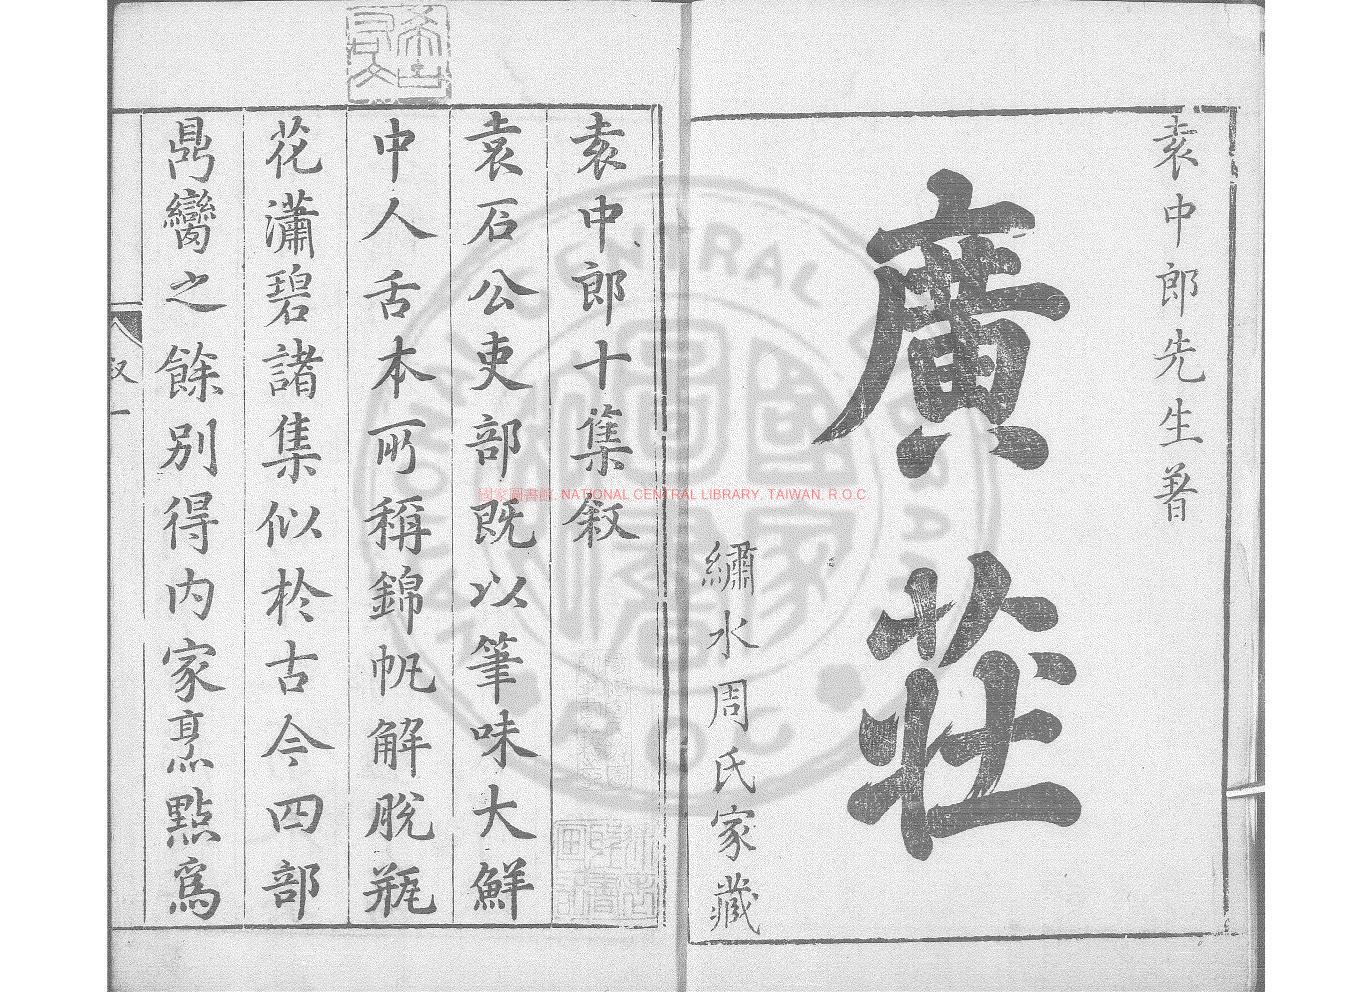 袁中郎先生著
廣莊
繡水周氏家藏
袁中郎十集叙
袁石公吏部既以筆味大鮮
中人舌本所稱錦帆解脫瓶
花瀟碧諸集似於古今四部
鼎臠之餘別得內家烹點爲
叙一
國家圖書館, NATIONAL CENTRAL LIBRARY, TAIWAN, R.O.C.
NATIONAL CENTRAL LIBRARY
R O C